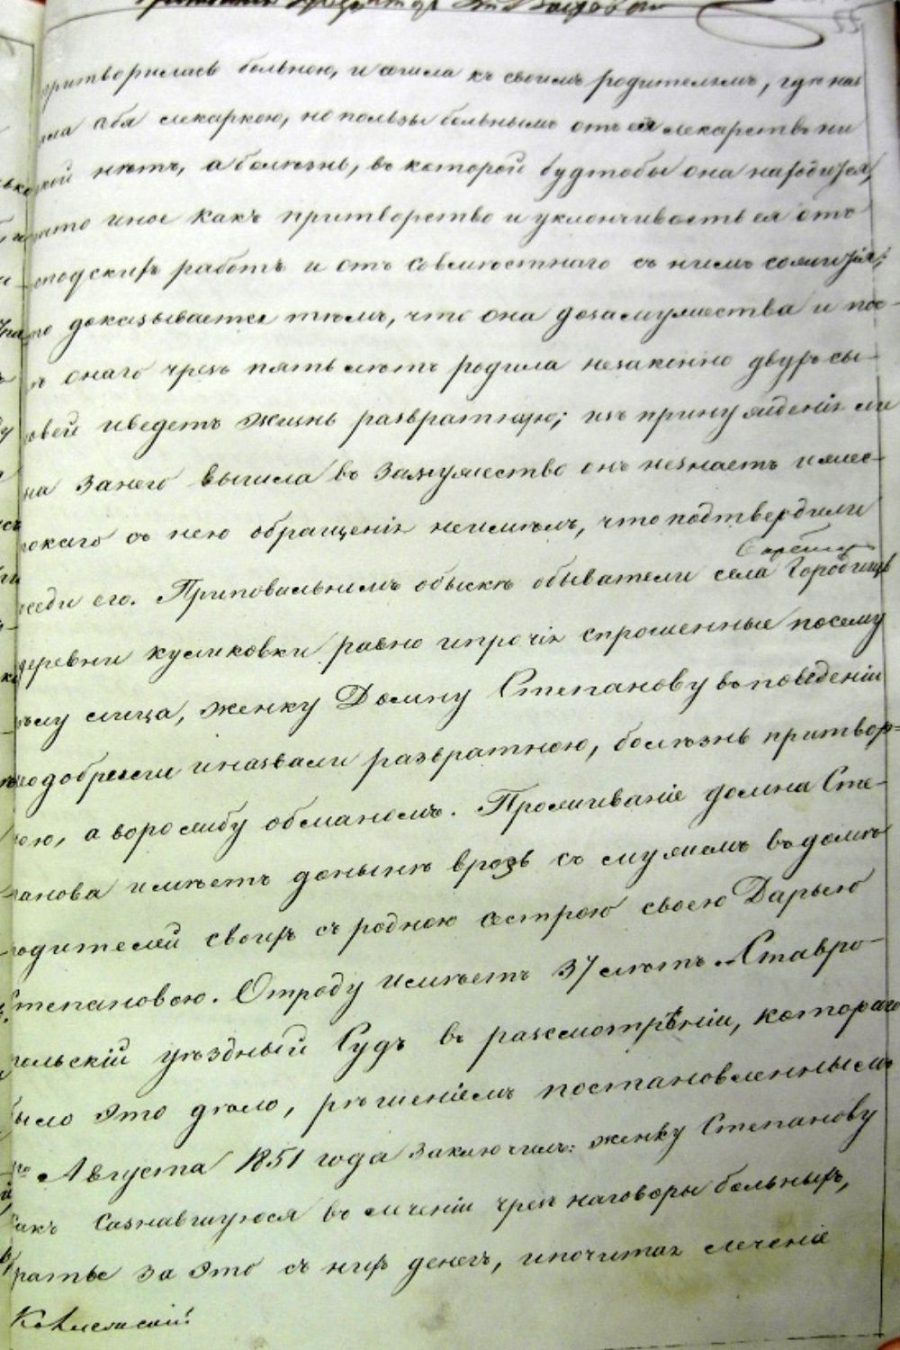 притворилась больною, и ушла къ своимъ родителямъ, где наз
ила себя лекаркою, но пользы больнымъ отъ ея лекарствъ ни
кой нѣтъ, а болѣзнь, въ которой будтобы она находится,
что иное какъ притворство и уклончивость ея отъ
подскихъ работъ и отъ совмѣстнаго съ нимъ сожитія;
то доказывается тѣмъ, что она дозамужества и пос-
лѣ онаго чрезъ пять лѣтъ родила незаконно двухъ сы-
новей иведетъ жизнь развратную; изъ принужденія ли
она занего вышла въ замужество онъ незнаетъ ижес-
токаго съ нею обращенія неимѣлъ, что подтвердили
соседи его. Приповальномъ обыскѣ обыватели села Городища
деревни куликовки равно ипрочія спрошенные посему
дѣлу лица, женку Домну Степанову въповеденіи
неодобрили иназвали развратною, болѣзнь притвор-
ною, а ворожбу обманомъ. Проживаніе домна Сте-
панова имѣетъ донынѣ врозь съ мужемъ въдомѣ
родителей своихъ съ родною сестрою своею Дарьею
Степановою. Отроду имѣетъ 37 лѣтъ. Ставро-
польскій уѣздный Судъ въ разсмотрѣніи, котораго
было это дѣло, рѣшеніемъ постановленнымъ
го Августа 1851 года заключилъ: женку Степанову
какъ сознавшуюся въ леченіи чрезъ наговоры больныхъ,
братье за это съ нихъ денегъ, ипочитая леченіе